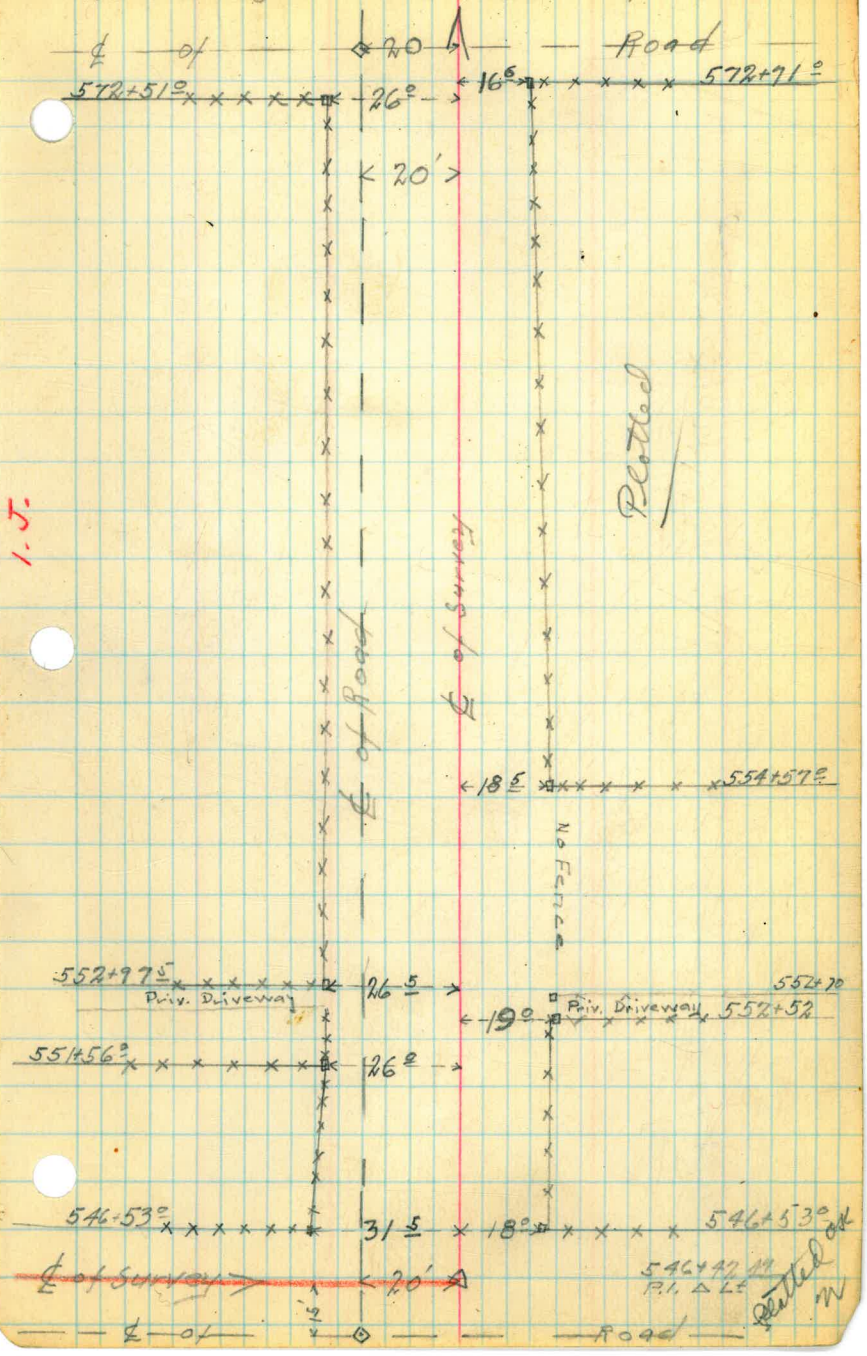 ℄ of 20 Road
572+51⁰ 26⁰ 16⁶ 572+91⁰
< 20' >
Plotted
1. J.
℄ of Survey
℄ of Road
18⁵ 554+57⁰
No Fence
552+97⁵ 26⁵ 552+70
Priv. Driveway 19⁰ Priv. Driveway 552+52
551+56⁰ 26⁰
546+53⁰ 31⁵ 18⁰ 546+53⁰
℄ of Survey > < 20'
P.I. Δ Lt
Plotted OK
℄ of Road